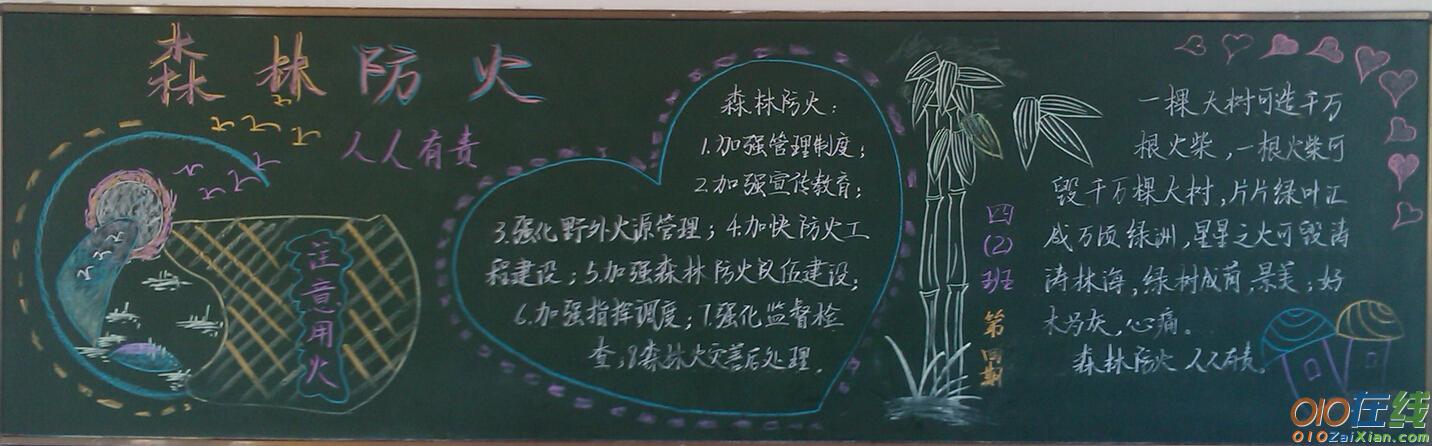 森林防火
人人有责
注意用火
森林防火：
1.加强管理制度；
2.加强宣传教育；
3.强化野外火源管理；4.加快防火工
程建设；5.加强森林防火队伍建设；
6.加强指挥调度；7.强化监督检
查；8森林火灾善后处理．
四(2)班
第四期
一棵大树可造千万
根火柴，一根火柴可
毁千万棵大树，片片绿叶汇
成万顷绿洲，星星之火可毁涛
涛林海，绿树成荫，景美；好
木为灰，心痛。
森林防火 人人有责。
010在线
010ZaiXian.com